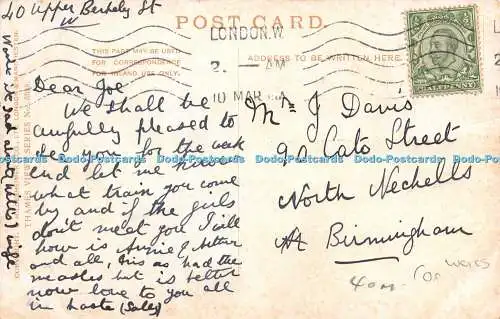 40 Upper Berkely St
W
POST CARD.
THIS PART MAY BE USED
FOR CORRESPONDENCE
FOR INLAND USE ONLY.
ADDRESS TO BE WRITTEN HERE.
LONDON.W.
2. AM
10 MAR
HALFPENNY
Dear Joe
We shall be
awfully pleased to
see you for the week
end let me know
what train you come
by and if the girls
don't meet you I will
how is Annie
and all, Iris as had the
measles but is better
now love to you all
in haste (Sally)
Mr J Davis
90 Cato Street
North Nechells
At Birmingham
Dodo-Postcards Dodo-Postcards Dodo-Postcards Dodo-Postcards
THAMES VIEW SERIES